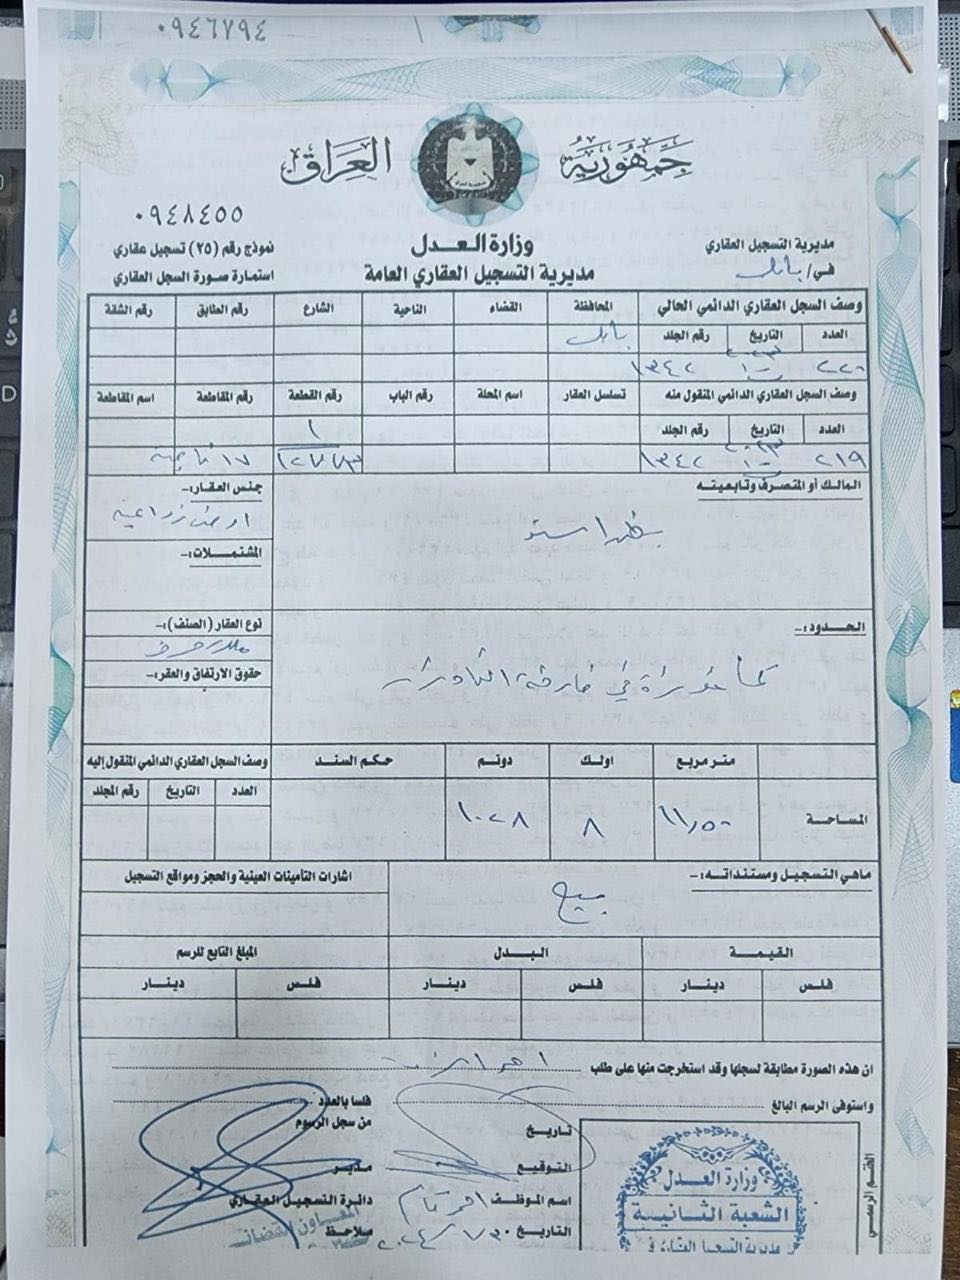 ٠٩٤٦٧٩٤
جمهورية العراق
٠٩٤٨٤٥٥
وزارة العدل
مديرية التسجيل العقاري العامة
مديرية التسجيل العقاري
في/ بابل
نموذج رقم (٢٥) تسجيل عقاري
استمارة صورة السجل العقاري
وصف السجل العقاري الدائمي الحالي المحافظة القضاء الناحية الشارع رقم الطابق رقم الشقة
العدد التاريخ رقم الجلد بابل
١٣٤٢
وصف السجل العقاري الدائمي المنقول منه تسلسل العقار اسم المحلة رقم الباب رقم القطعة رقم المقاطعة اسم المقاطعة
العدد التاريخ رقم الجلد ١
٢١٩ ١٣٤٢ ١٧
المالك او المتصرف وتابعيته جنس العقار:-
ارض زراعية
المشتملات:-
الحدود:- نوع العقار (الصنف):-
ملك صرف
حقوق الارتفاق والعقر:-
كما مؤشرة في خارطة
متر مربع اولك دونم حكم السند وصف السجل العقاري الدائمي المنقول اليه
العدد التاريخ رقم المجلد
المساحة ١١,٥٠ ٨ ١٠٢٨
ماهي التسجيل ومستنداته:- اشارات التأمينات العينية والحجز ومواقع التسجيل
بيع
القيمة البدل المبلغ التابع للرسم
فلس دينار فلس دينار فلس دينار
ان هذه الصورة مطابقة لسجلها وقد استخرجت منها على طلب
واستوفى الرسم البالغ فلسا بالعدد
تاريخ من سجل الرسوم
التوقيع مدير
اسم الموظف دائرة التسجيل العقاري
التاريخ ٢٠٢٤/١/٣٠ ملاحظ
الختم الرسمي
وزارة العدل
الشعبة الثانية